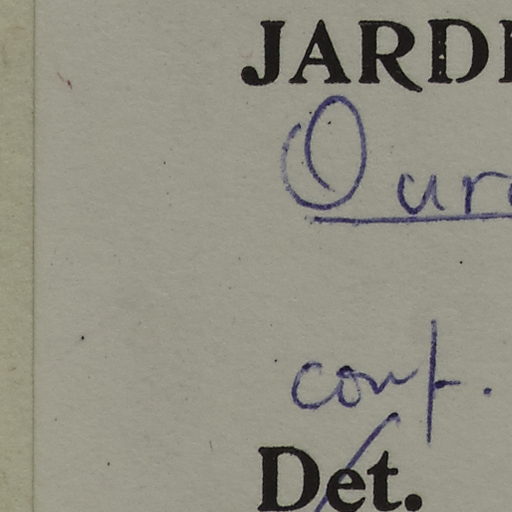 JARDI
Oura
conf.
Det.